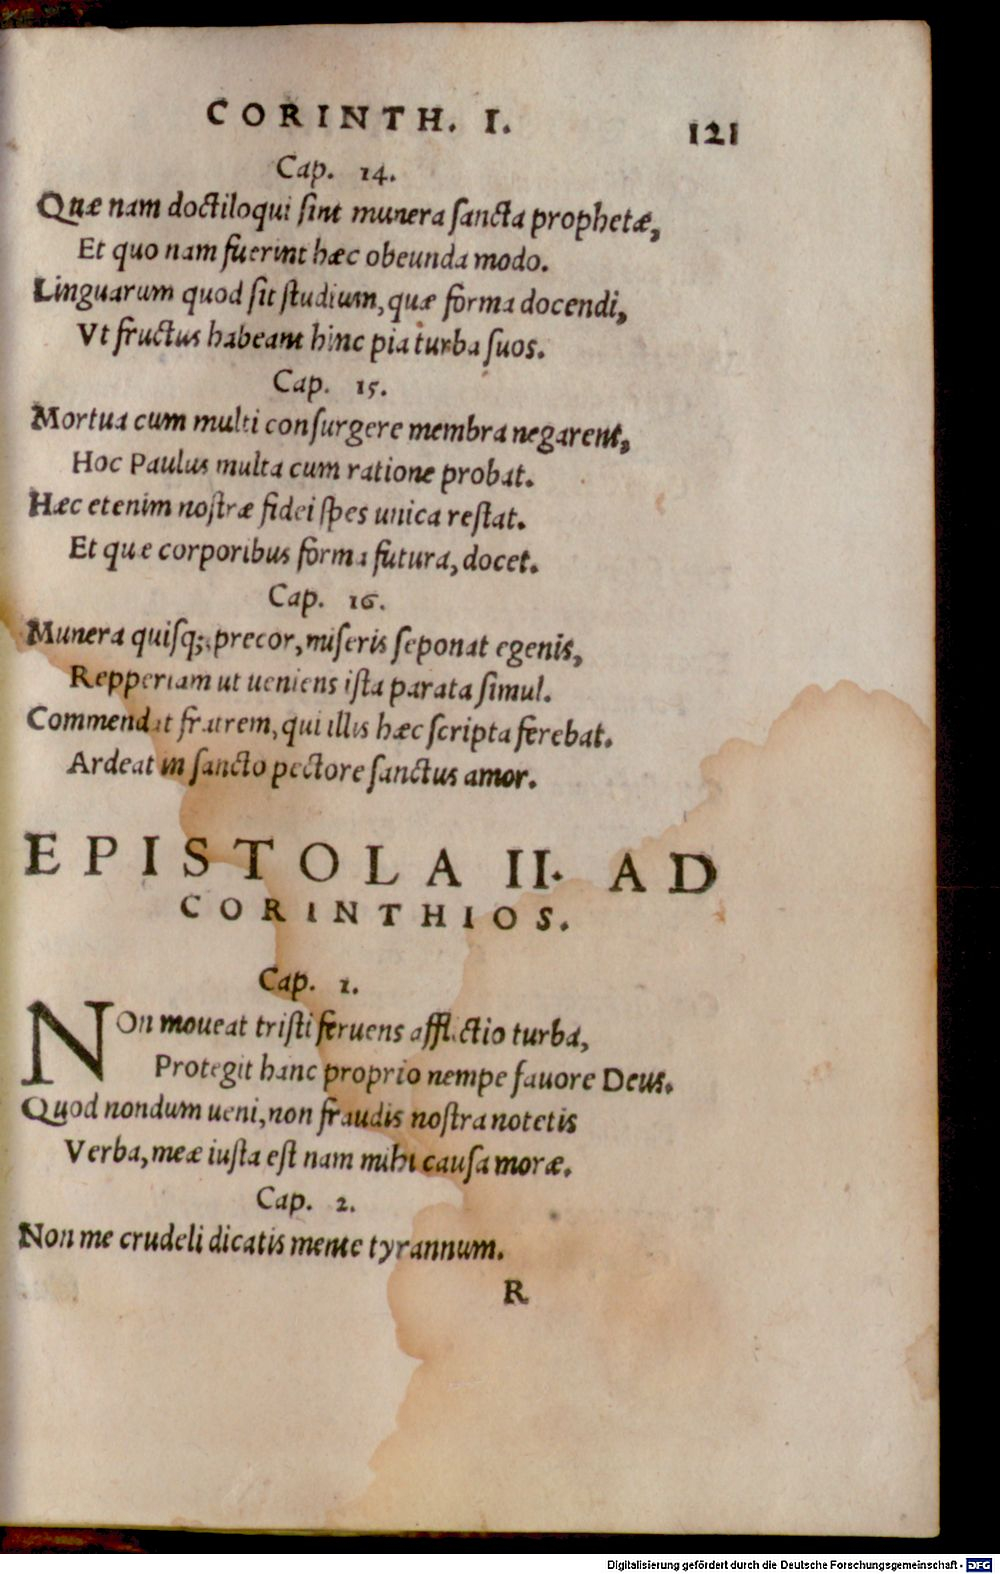 CORINTH. I. 121
Cap. 14.
Quæ nam doctiloqui ſint munera ſancta prophetæ,
Et quo nam fuerint hæc obeunda modo.
Linguarum quod ſit ſtudium, quæ forma docendi,
Vt fructus habeant hinc pia turba ſuos.
Cap. 15.
Mortua cum multi conſurgere membra negarent,
Hoc Paulus multa cum ratione probat.
Hæc etenim noſtræ fidei ſpes unica reſtat.
Et quæ corporibus forma futura, docet.
Cap. 16.
Munera quiſq;, precor, miſeris ſeponat egenis,
Repperiam ut ueniens iſta parata ſimul.
Commendat fratrem, qui illis hæc ſcripta ferebat.
Ardeat in ſancto pectore ſanctus amor.
EPISTOLA II. AD
CORINTHIOS.
Cap. 1.
NOn moueat triſti feruens afflictio turba,
Protegit hanc proprio nempe fauore Deus.
Quod nondum ueni, non fraudis noſtra notetis
Verba, meæ iuſta eſt nam mihi cauſa moræ.
Cap. 2.
Non me crudeli dicatis mente tyrannum.
R
Digitalisierung gefördert durch die Deutsche Forschungsgemeinschaft - DFG